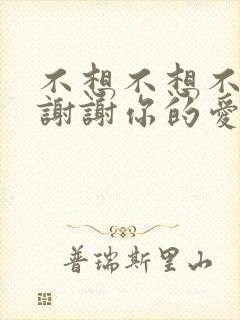 不想不想不
謝謝你的愛
普瑞斯里山